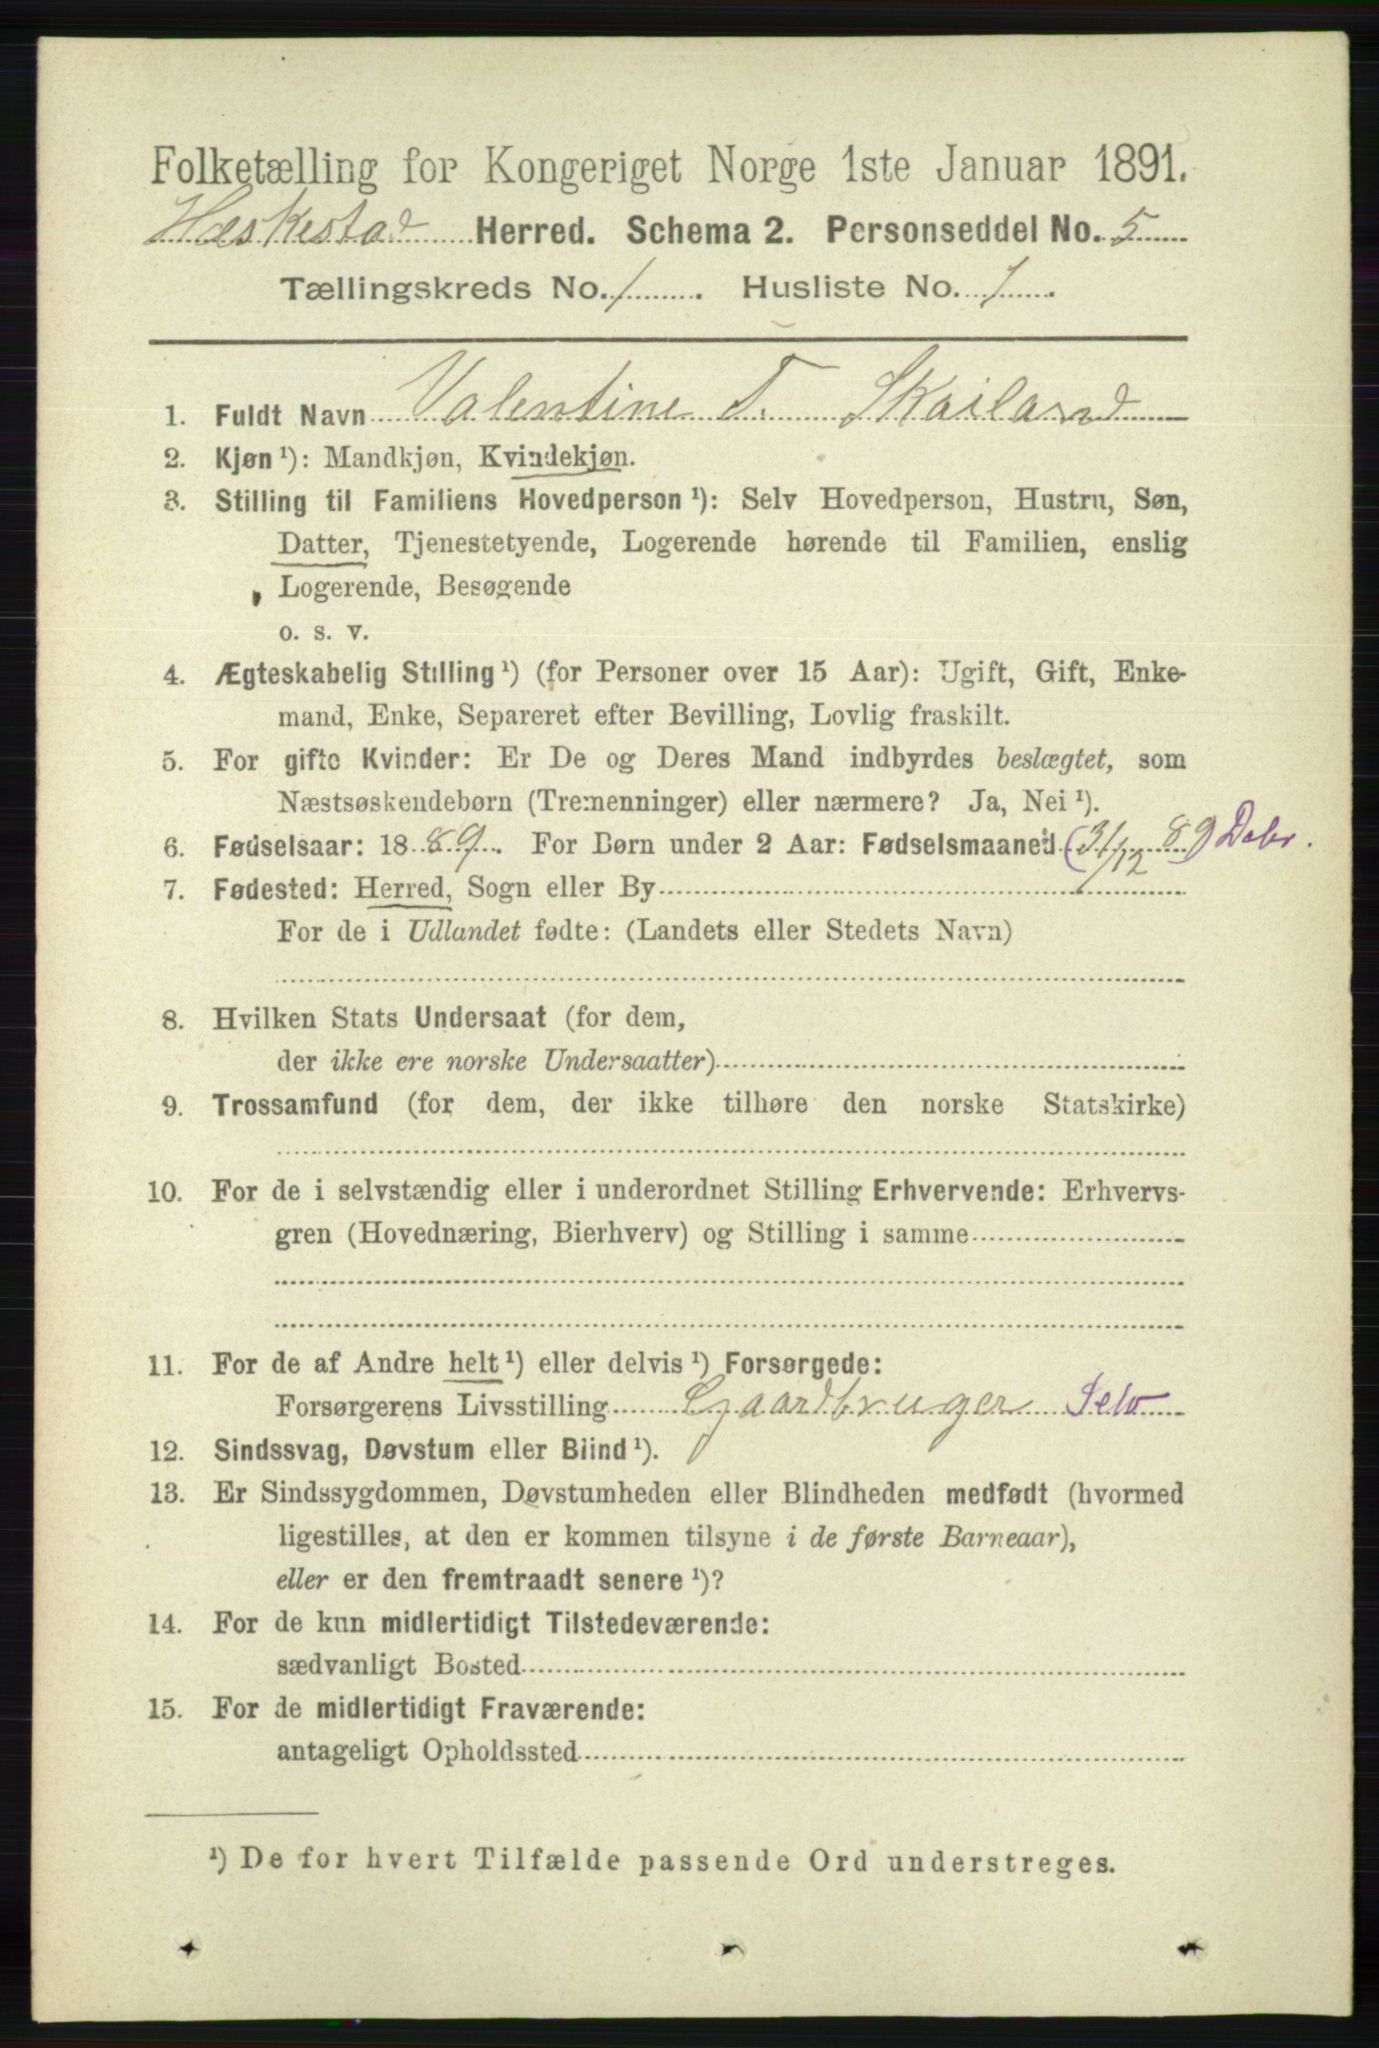 Folketælling for Kongeriget Norge 1ste Januar 1891.
Heskestad Herred. Schema 2. Personseddel No. 5
Tællingskreds No. 1. Husliste No. 1.
1. Fuldt Navn Valentine T. Skailand
2. Kjøn ¹): Mandkjøn, Kvindekjøn.
3. Stilling til Familiens Hovedperson ¹): Selv Hovedperson, Hustru, Søn,
Datter, Tjenestetyende, Logerende hørende til Familien, enslig
Logerende, Besøgende
o. s. v.
4. Ægteskabelig Stilling ¹) (for Personer over 15 Aar): Ugift, Gift, Enke-
mand, Enke, Separeret efter Bevilling, Lovlig fraskilt.
5. For gifte Kvinder: Er De og Deres Mand indbyrdes beslægtet, som
Næstsøskendebørn (Tremenninger) eller nærmere? Ja, Nei ¹).
6. Fødselsaar: 1889. For Børn under 2 Aar: Fødselsmaaned (31/12 89) Debr.
7. Fødested: Herred, Sogn eller By
For de i Udlandet fødte: (Landets eller Stedets Navn)
8. Hvilken Stats Undersaat (for dem,
der ikke ere norske Undersaatter)
9. Trossamfund (for dem, der ikke tilhøre den norske Statskirke)
10. For de i selvstændig eller i underordnet Stilling Erhvervende: Erhvervs-
gren (Hovednæring, Bierhverv) og Stilling i samme
11. For de af Andre helt ¹) eller delvis ¹) Forsørgede:
Forsørgerens Livsstilling Gaardbruger Selv
12. Sindssvag, Døvstum eller Blind ¹).
13. Er Sindssygdommen, Døvstumheden eller Blindheden medfødt (hvormed
ligestilles, at den er kommen tilsyne i de første Barneaar),
eller er den fremtraadt senere ¹)?
14. For de kun midlertidigt Tilstedeværende:
sædvanligt Bosted
15. For de midlertidigt Fraværende:
antageligt Opholdssted
¹) De for hvert Tilfælde passende Ord understreges.